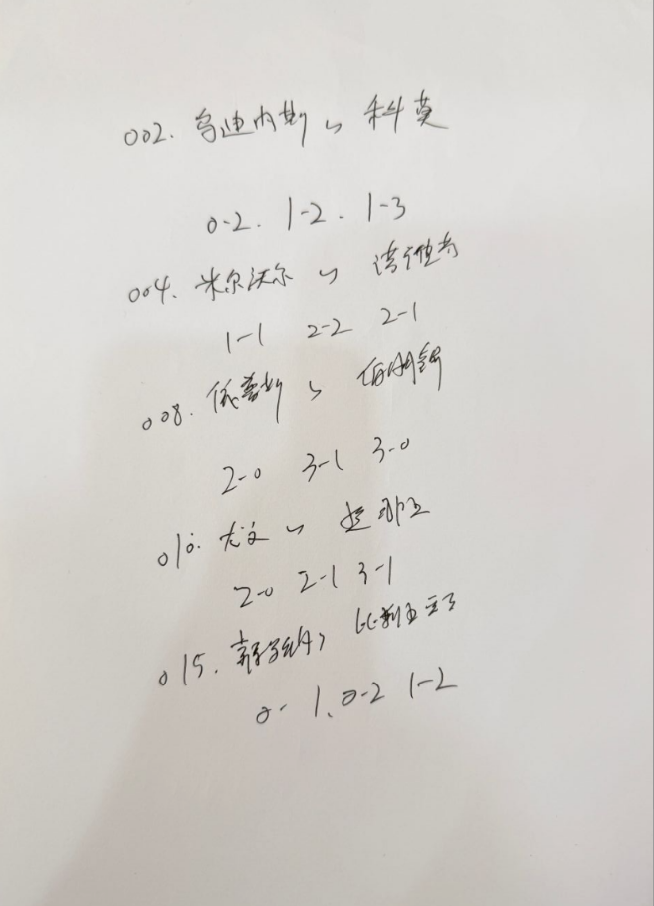 002. 乌迪内斯 vs 科莫
0-2. 1-2. 1-3
004. 米尔沃尔 vs 诺维奇
1-1 2-2 2-1
008. 依普斯 vs 伯明翰
2-0 3-1 3-0
010. 尤文 vs 热那亚
2-0 2-1 3-1
015. vs 比利亚雷
0-1. 0-2 1-2